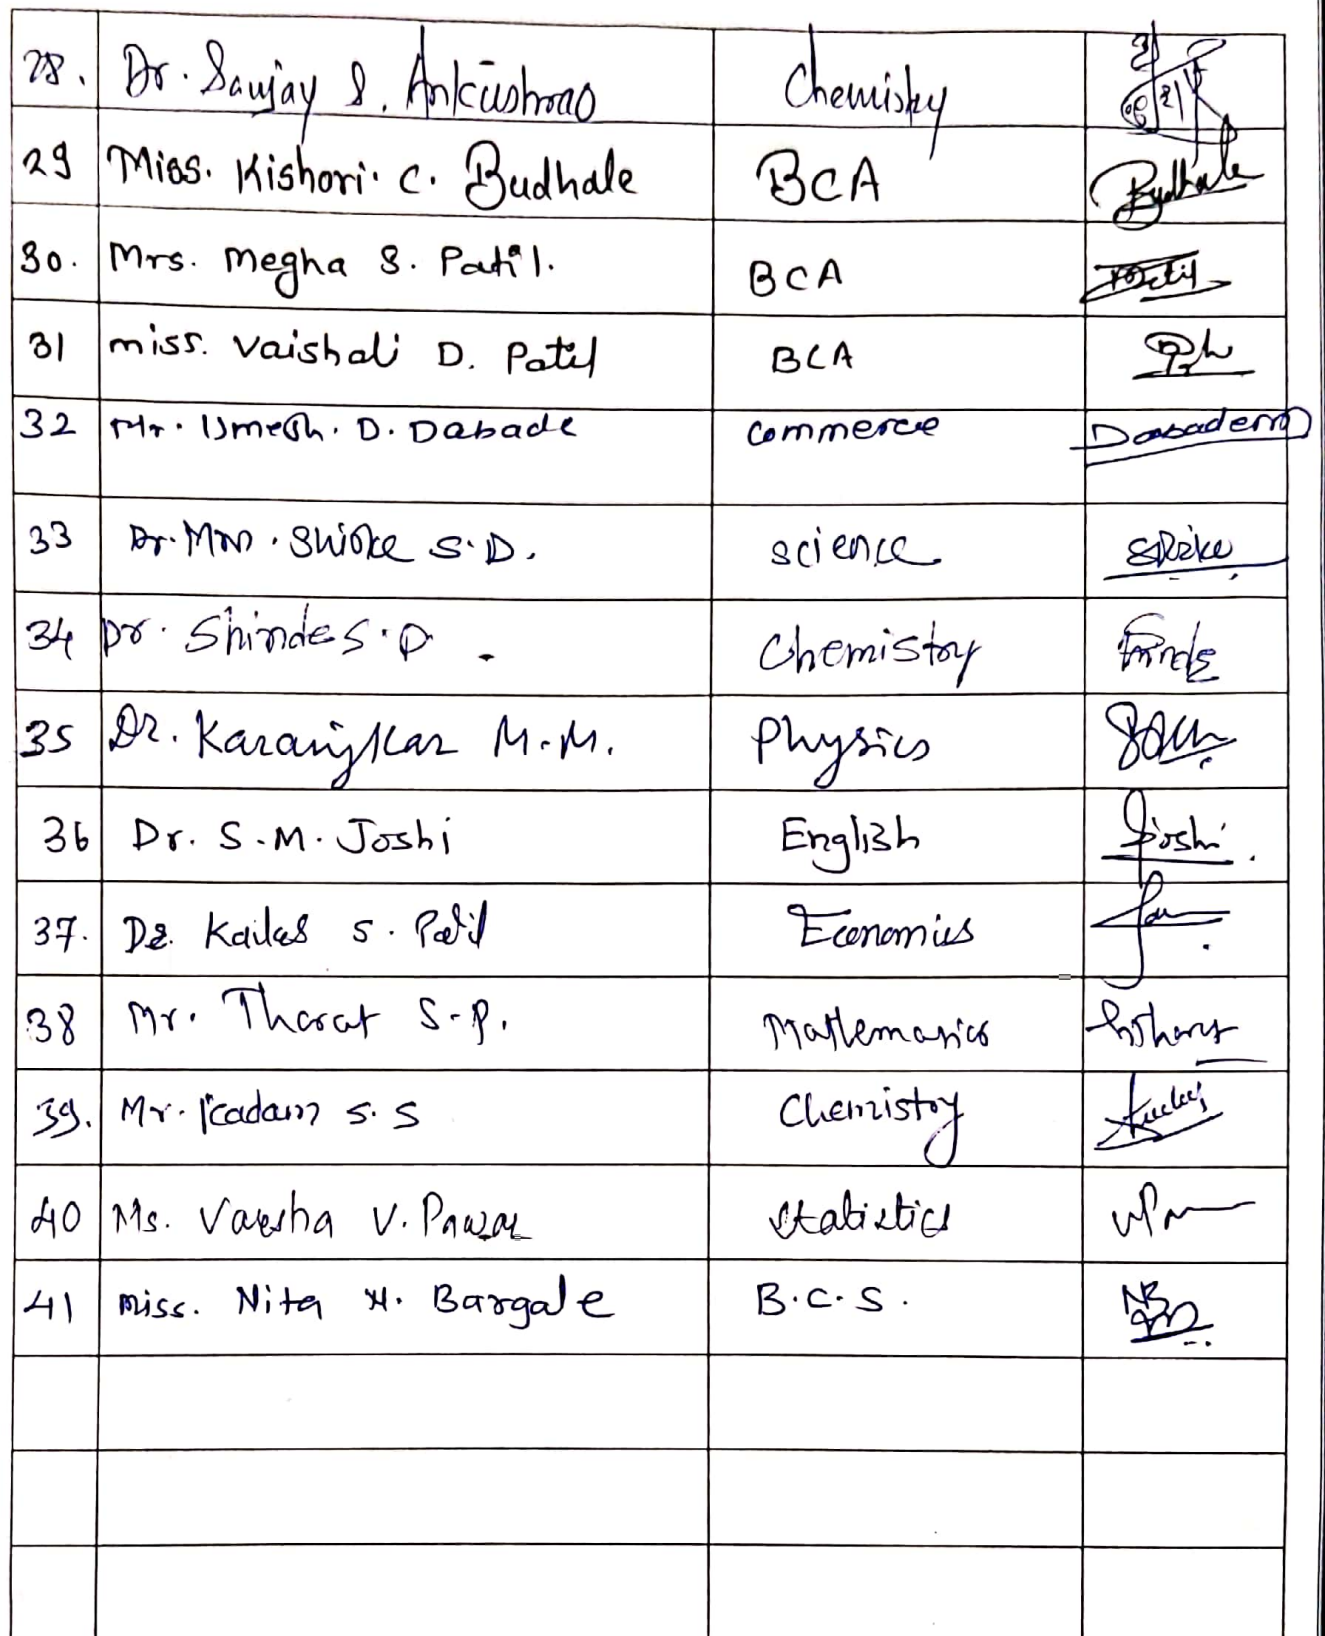 28. Dr. Sanjay S. Ankushrao Chemistry
29 Miss. Kishori. C. Budhale BCA Budhale
30. Mrs. Megha S. Patil. BCA Patil
31 miss. Vaishali D. Patil BCA
32 Mr. Umesh. D. Dabade Commerce Dabade
33 Dr. Mrs. Shirke S.D. science
34 Dr. Shinde S.D. Chemistry
35 Dr. Karanjkar M.M. Physics
36 Dr. S.M. Joshi English Joshi
37. Dr. Kailas S. Patil Economics
38 Mr. Thorat S.P. Mathematics
39. Mr. Kadam S.S Chemistry
40 Ms. Varsha V. Pawar Statistics
41 miss. Nita H. Bargale B.C.S. NB